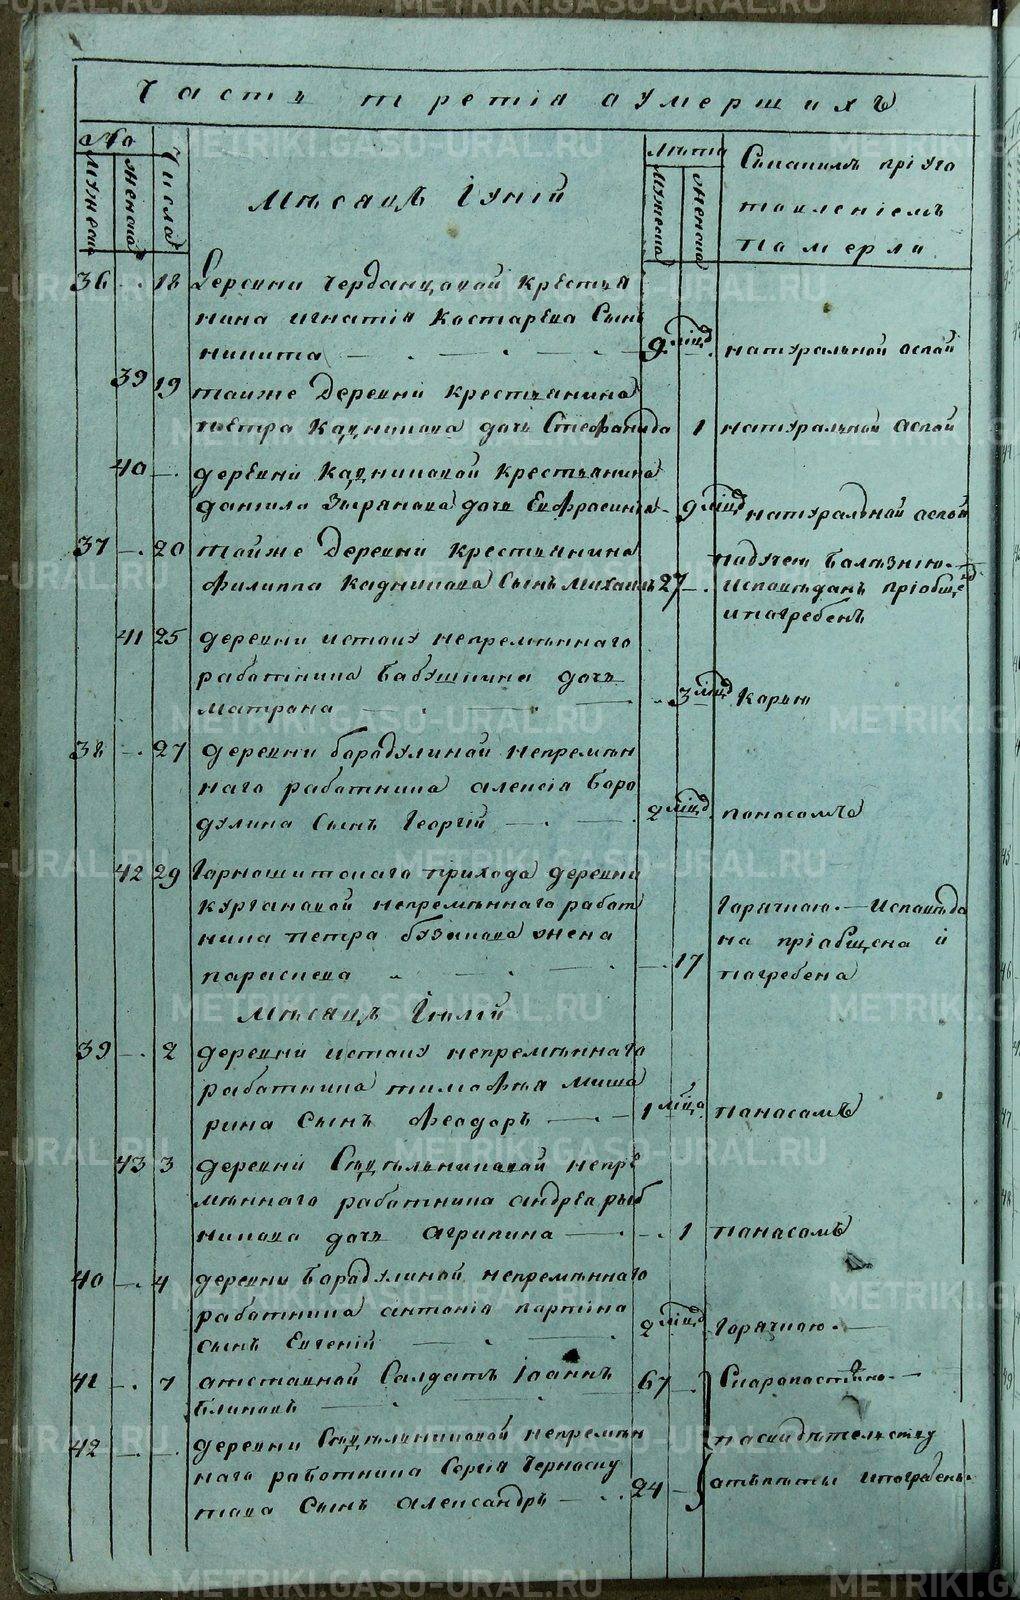 Часть третія аумершихъ
№
мужеска
женска
Числа
Мѣсяцъ Іуній
Лѣта
мужеска
женска
Съпакимъ пріуго
товленіемъ
Памерли
36 18 Деревни Чердынцовой крестья
нина игнатія Костарева Сынъ
никита 9 міцд натуральной оспой
39 19 таиже Деревни крестьянина
петра Кадникова дочь Стефанида 1 натуральной аспой
40 деревни Кадниковой Крестьянина
данила Зырянова дочь Евфросинія 9 міцд натуральной аспой
37 20 тойже Деревни Крестьянина
филиппа Кадникова Сынъ Михаилъ 27 падучею балѣзнію
Исповѣданъ пріобще
ипагребенъ
41 25 деревни истоку непремѣннаго
работника Бабушкина дочь
матрона 3 міцд Карью
38 27 деревни барадулиной непремѣн
наго работника алексія Боро
дулина Сынъ Георгій 2 міцд паносомъ
42 29 Горношитскаго прихода деревни
кургановой непремѣннаго работ
ника петра бузыкова жена
параскева 17 Горячкою. Исповѣда
на пріобщена и
пагребена
Мѣсяцъ Іюлій
39 2 деревни истоку непремѣннаго
работника тимофѣя миша
рина Сынъ феодоръ 1 міца паносомъ
43 3 деревни Сѣдѣльниковой непре
мѣннаго работника андрЕа рыб
никова дочь агрипина 1 паносомъ
40 4 деревни Барадулиной непремѣннаго
работника антонія партина
Сынъ Евгеній 2 міцд Горячкою.
41 7 атставной Салдатъ Іоаннъ
Блиновъ 67 Скоропастижно
42 деревни Сѣдѣльниковой непремѣн
наго работника Сергія Черноску
това Сынъ Александръ 24 посвидѣтельству
ипогребены